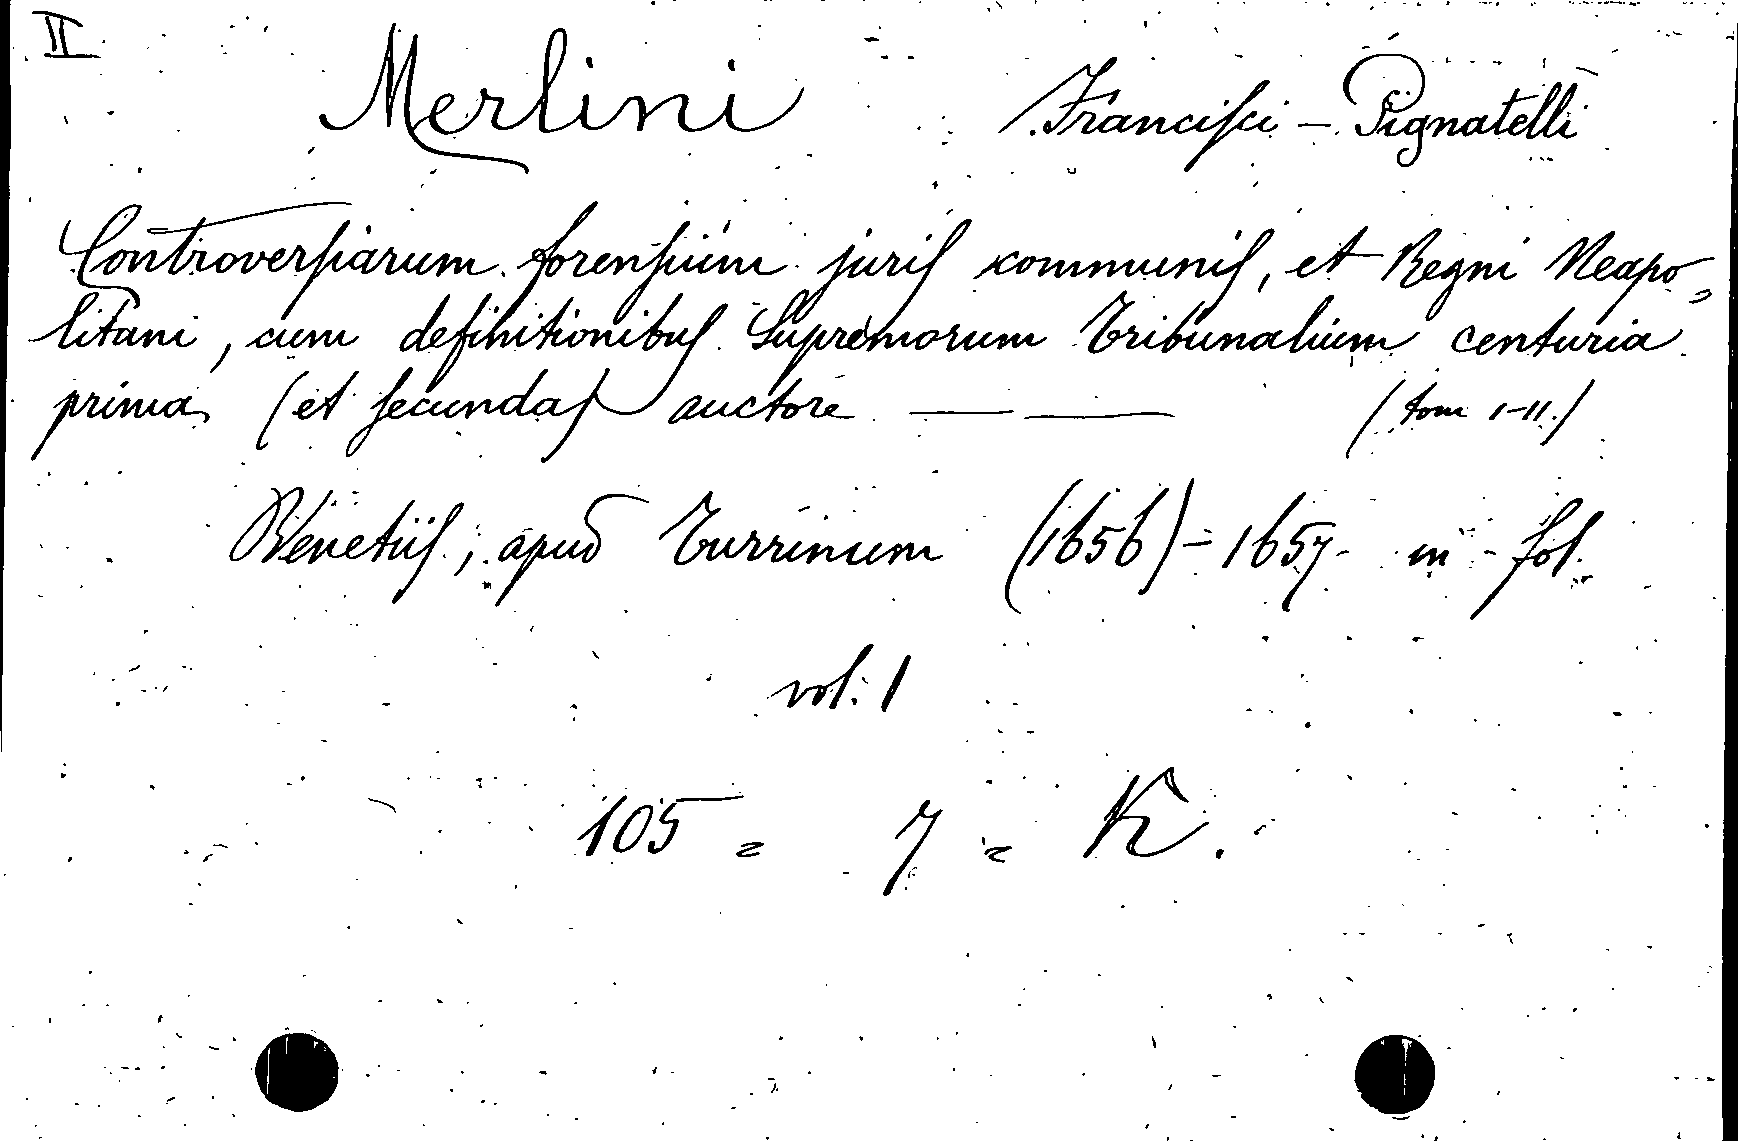 II
Merlini Francisci - Pignatelli
Controversiarum forensium juris communis, et Regni Neapo=
litani, cum definitionibus Supremorum Tribunalium centuria
prima (et secunda) auctore — — (tom I-II.)
Venetiis, apud Turrinum (1656) - 1657 - in - fol.
vol. 1
105 = 7 = K.